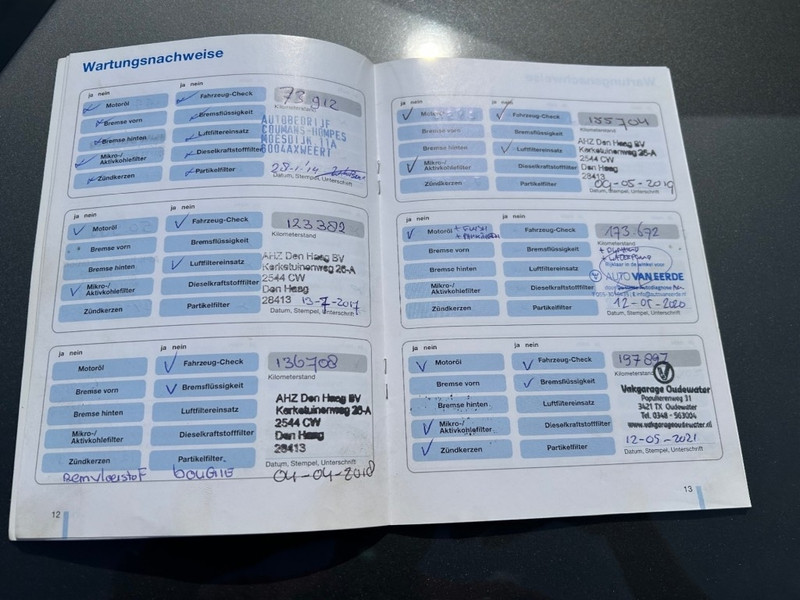 Wartungsnachweise
ja nein ja nein
Motoröl Fahrzeug-Check 73 912
Kilometerstand
Bremse vorn Bremsflüssigkeit
AUTOBEDRIJF
COUMANS-HOMPES
MOESDIJK 11A
6004AXWEERT
Bremse hinten Luftfiltereinsatz
Mikro-/
Aktivkohlefilter Dieselkraftstofffilter
Zündkerzen Partikelfilter
28-1-'14
Datum, Stempel, Unterschrift
ja nein ja nein
Motoröl Fahrzeug-Check 123 382
Kilometerstand
Bremse vorn Bremsflüssigkeit
Bremse hinten Luftfiltereinsatz
Mikro-/
Aktivkohlefilter Dieselkraftstofffilter
Zündkerzen Partikelfilter
AHZ Den Haag BV
Kerketuinenweg 26-A
2544 CW
Den Haag
28413 13-7-2017
Datum, Stempel, Unterschrift
ja nein ja nein
Motoröl Fahrzeug-Check 136708
Kilometerstand
Bremse vorn Bremsflüssigkeit
Bremse hinten Luftfiltereinsatz
Mikro-/
Aktivkohlefilter Dieselkraftstofffilter
Zündkerzen Partikelfilter
AHZ Den Haag BV
Kerketuinenweg 26-A
2544 CW
Den Haag
28413
Datum, Stempel, Unterschrift
Remvloeistof bougiie 04-04-2018
12
ja nein ja nein
Motoröl Fahrzeug-Check 155704
Kilometerstand
Bremse vorn Bremsflüssigkeit
Bremse hinten Luftfiltereinsatz
Mikro-/
Aktivkohlefilter Dieselkraftstofffilter
Zündkerzen Partikelfilter
AHZ Den Haag BV
Kerketuinenweg 26-A
2544 CW
Den Haag
28413
09-05-2019
Datum, Stempel, Unterschrift
ja nein ja nein
Motoröl Fahrzeug-Check 173.672
Kilometerstand
Bremse vorn Bremsflüssigkeit
Bremse hinten Luftfiltereinsatz
Mikro-/
Aktivkohlefilter Dieselkraftstofffilter
Zündkerzen Partikelfilter
AUTO VAN EERDE
12-05-2020
Datum, Stempel, Unterschrift
ja nein ja nein
Motoröl Fahrzeug-Check 197897
Kilometerstand
Bremse vorn Bremsflüssigkeit
Bremse hinten Luftfiltereinsatz
Mikro-/
Aktivkohlefilter Dieselkraftstofffilter
Zündkerzen Partikelfilter
Vakgarage Oudewater
Populierenweg 31
3421 TX Oudewater
Tel. 0348 - 563004
www.vakgarageoudewater.nl
12-05-2021
Datum, Stempel, Unterschrift
13